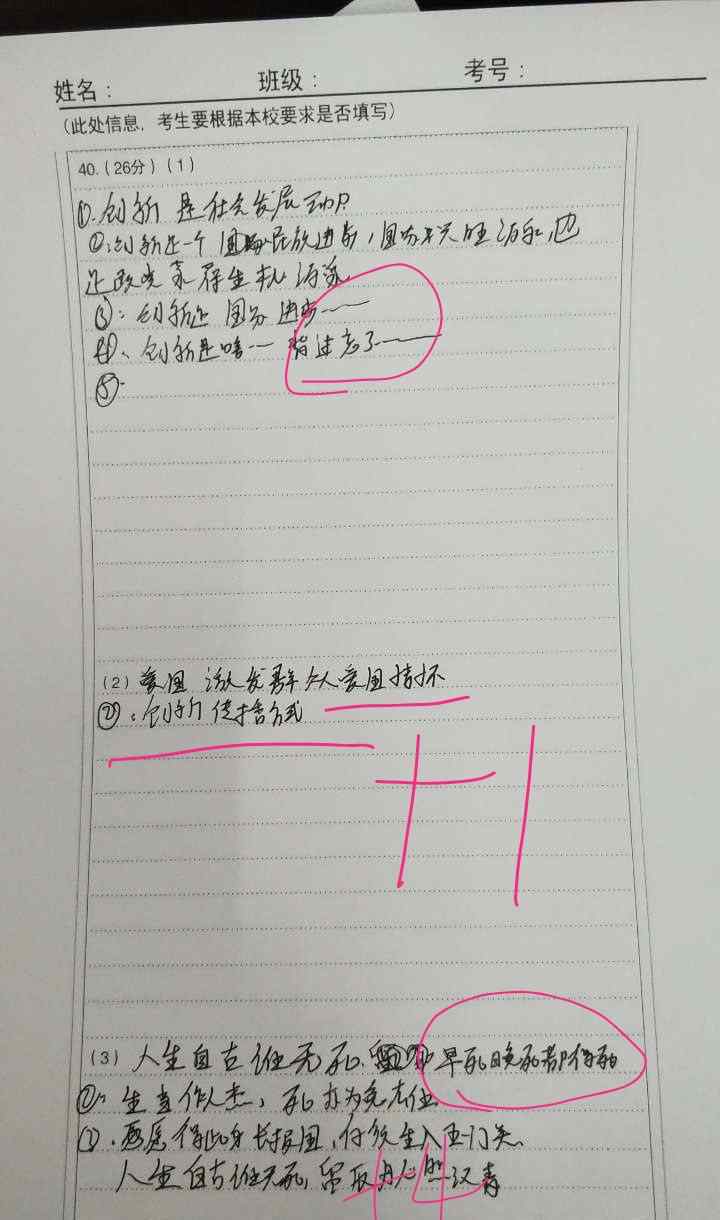 姓名：　班级：　考号：
（此处信息，考生要根据本校要求是否填写）
40.（26分）（1）
①.创新是社会发展
②:创新是一个国家民族进步，国家兴旺 也
是政党 生机 源泉
③：创新是国家进步……
④、创新是啥… 背过忘了……
⑤.
（2）爱国 激发 爱国情怀
②：创新传播方式
+1
（3）人生自古谁无死. 早死晚死都得死
②：生当作人杰，死亦为鬼雄
③.愿得此身长报国，何须生入玉门关.
人生自古谁无死，留取丹心照汗青
+4